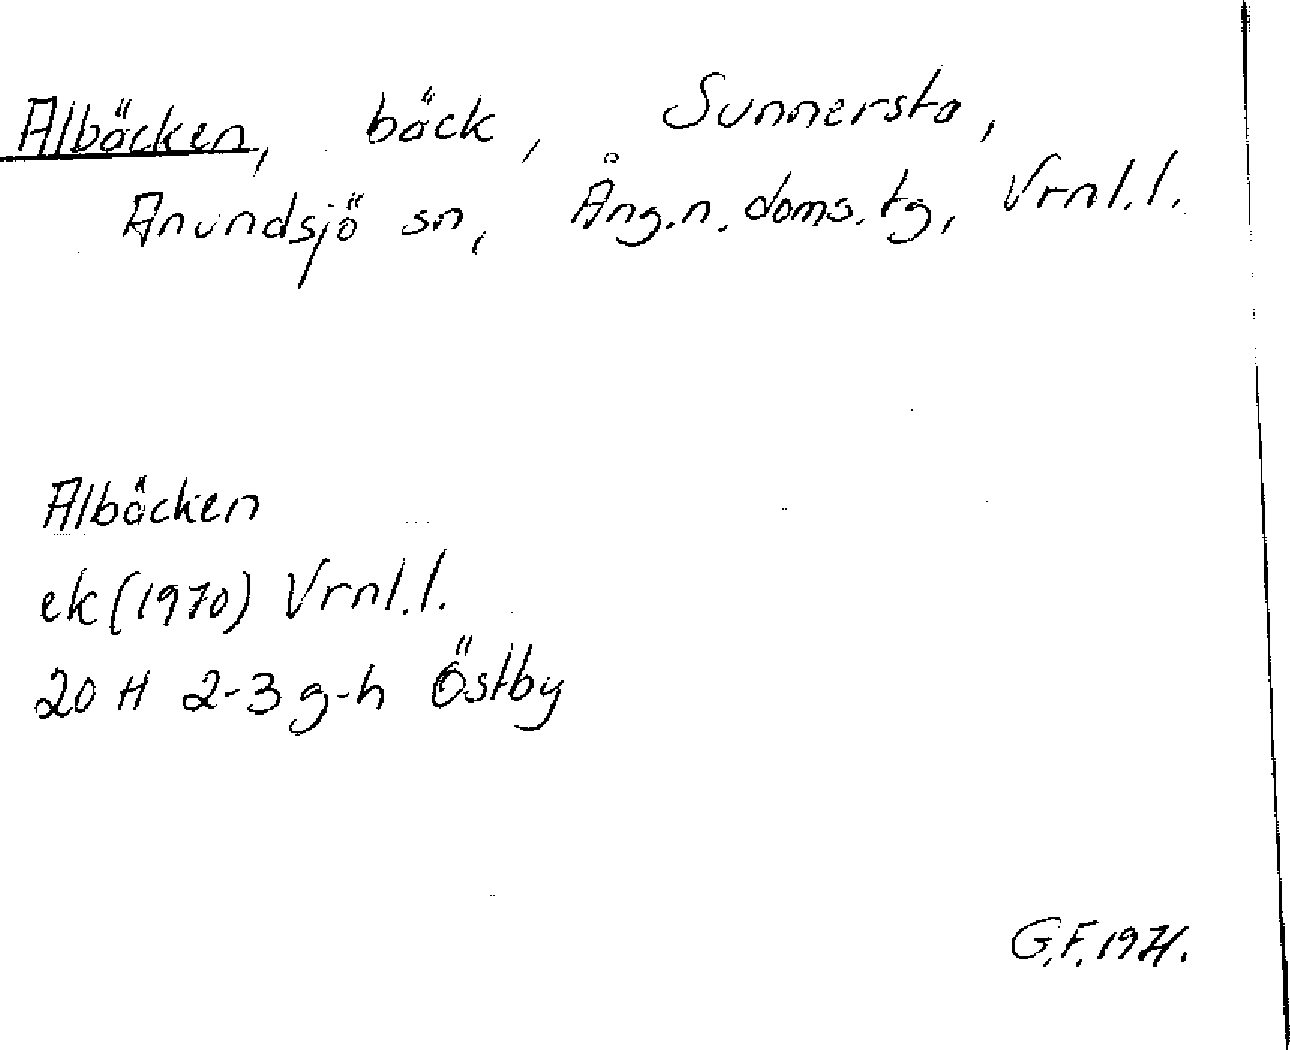 Albäcken, bäck, Sunnersta,
Anundsjö sn, Ång.n.doms.tg, Vrnl.l.
Albäcken
ek (1970) Vrnl.l.
20 H 2-3 g-h Östby
G.F. 1971.